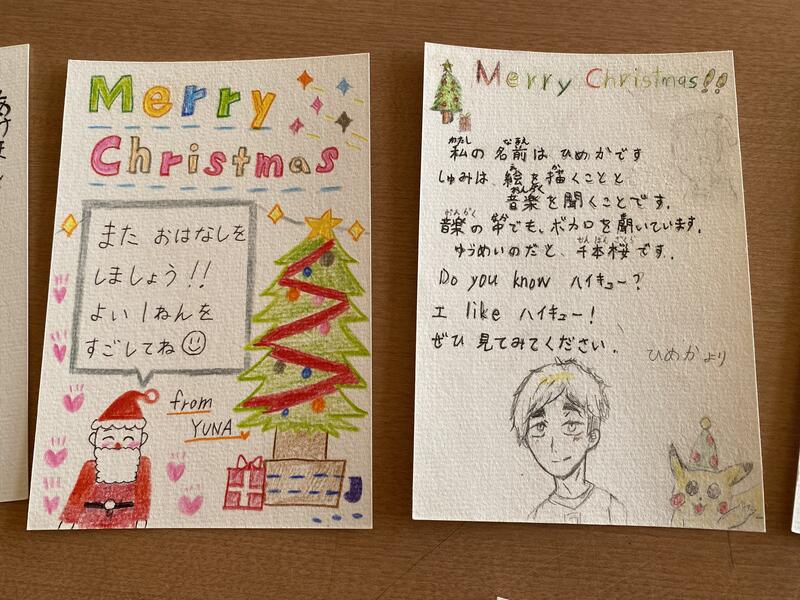 あけま
Merry
Christmas
また おはなしを
しましょう!!
よい 1ねんを
すごしてね
from
YUNA
Merry Christmas!!
わたし なまえ
私の 名前は ひめかです
え か
しゅみは、絵を描くことと
おんがく
音楽を聞くことです。
おんがく
音楽の 中でも、ボカロを 聞いています。
せんぼんざくら
ゆうめいのだと、千本桜です。
Do you know ハイキュー?
I like ハイキュー!
ぜひ 見てみてください.
ひめかより